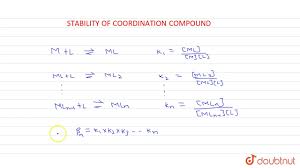 STABILITY OF COORDINATION COMPOUND
M+L ⇌ ML K₁ = [ML]/[M][L]
ML+L ⇌ ML₂ K₂ = [ML₂]/[ML][L]
⋮ ⋮
MLₙ₋₁+L ⇌ MLₙ Kₙ = [MLₙ]/[MLₙ₋₁][L]
βₙ = K₁×K₂×K₃ --- Kₙ
doubtnut